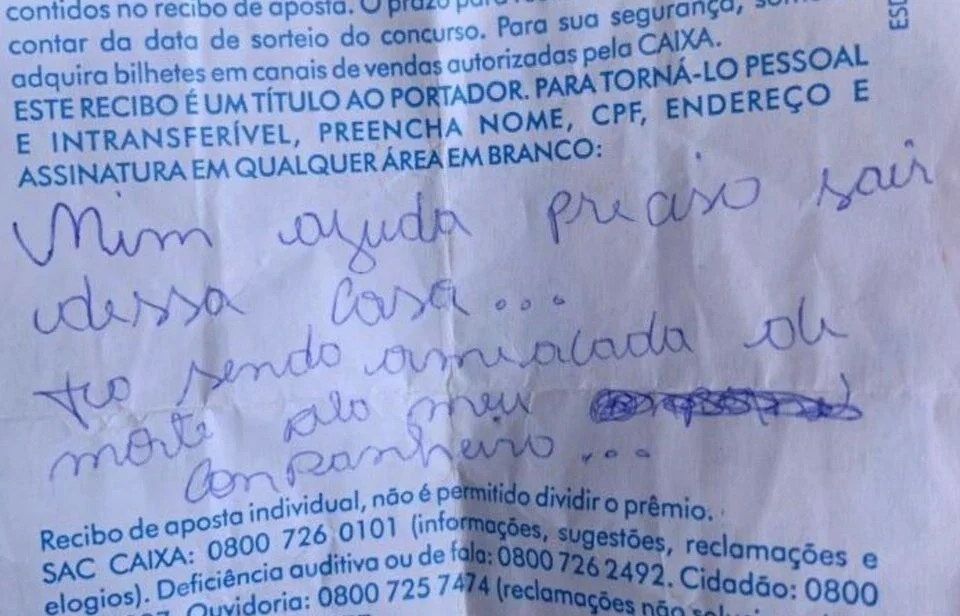 contidos no recibo de aposta. O prazo
contar da data de sorteio do concurso. Para sua segurança,
adquira bilhetes em canais de vendas autorizadas pela CAIXA.
ESTE RECIBO É UM TÍTULO AO PORTADOR. PARA TORNÁ-LO PESSOAL
E INTRANSFERÍVEL, PREENCHA NOME, CPF, ENDEREÇO E
ASSINATURA EM QUALQUER ÁREA EM BRANCO:
Mim ajuda preciso sair
dessa casa...
to sendo amiacada de
morte pelo meu
companheiro...
Recibo de aposta individual, não é permitido dividir o prêmio.
SAC CAIXA: 0800 726 0101 (informações, sugestões, reclamações e
elogios). Deficiência auditiva ou de fala: 0800 726 2492. Cidadão: 0800
Ouvidoria: 0800 725 7474 (reclamações não